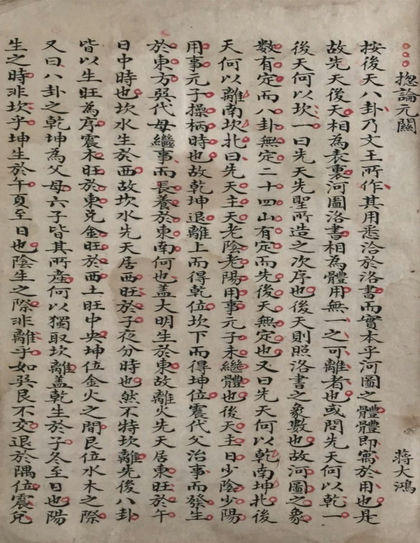 揔論元關
蔣大鴻
按後天八卦乃文王所作其用悉洽於洛書而實本乎河圖之體體即寓於用也是
故先天後天相為表裏河圖洛書相為體用無一之可離者也或問先天何以乾一
後天何以坎一曰先天先聖所造之次序也後天則照洛書之象數也故河圖之象
數有定而八卦無定二十四山有定而先後天無定也又曰先天何以乾南坤北後
天何以離南坎北曰先天主天老陰老陽用事元子未繼體也後天主日少陰少陽
用事元子操柄時也故乾坤退離上而得乾位坎下而得坤位震代父治事而發生
於東方巽代母繼事而長養於東南何也盖大明生於東故離火先天居東旺於
日中時也坎水生於西故坎水先天居西旺於子夜分時也然不特坎離先後八卦
皆以生旺為序震木旺於東兌金旺於西土旺中央坤位金火之間艮位水木之際
又曰八卦之乾坤為父母六子皆其所產何以獨取坎離盖乾生於子冬至日也陽
生之時非坎乎坤生於午夏至日也陰生之際非離乎如巽艮不交退於隅位震兌